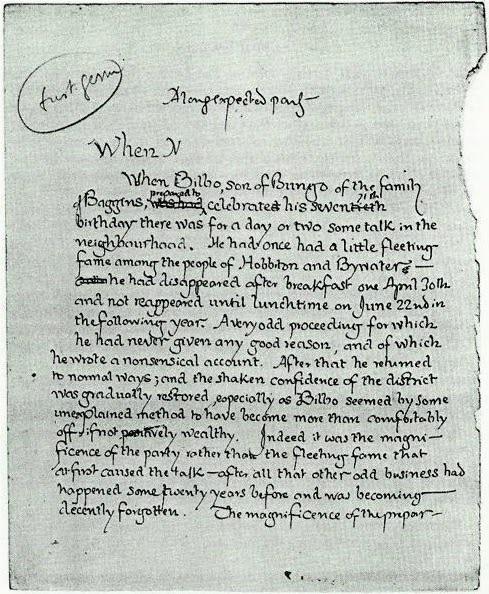 first germ
A long expected party
When N
When Bilbo, son of Bungo of the family
prepared to 71st
of Baggins, was had celebrated his seventieth
birthday there was for a day or two some talk in the
neighbourhood. He had once had a little fleeting
fame among the people of Hobbiton and Bywater —
he had disappeared after breakfast one April 30th
and not reappeared until lunchtime on June 22nd in
the following year. A very odd proceeding for which
he had never given any good reason, and of which
he wrote a nonsensical account. After that he returned
to normal ways; and the shaken confidence of the district
was gradually restored, especially as Bilbo seemed by some
unexplained method to have become more than comfortably
off, if not positively wealthy. Indeed it was the magni-
ficence of the party rather than the fleeting fame that
at first caused the talk — after all that other odd business had
happened some twenty years before and was becoming
decently forgotten. The magnificence of the prepar-